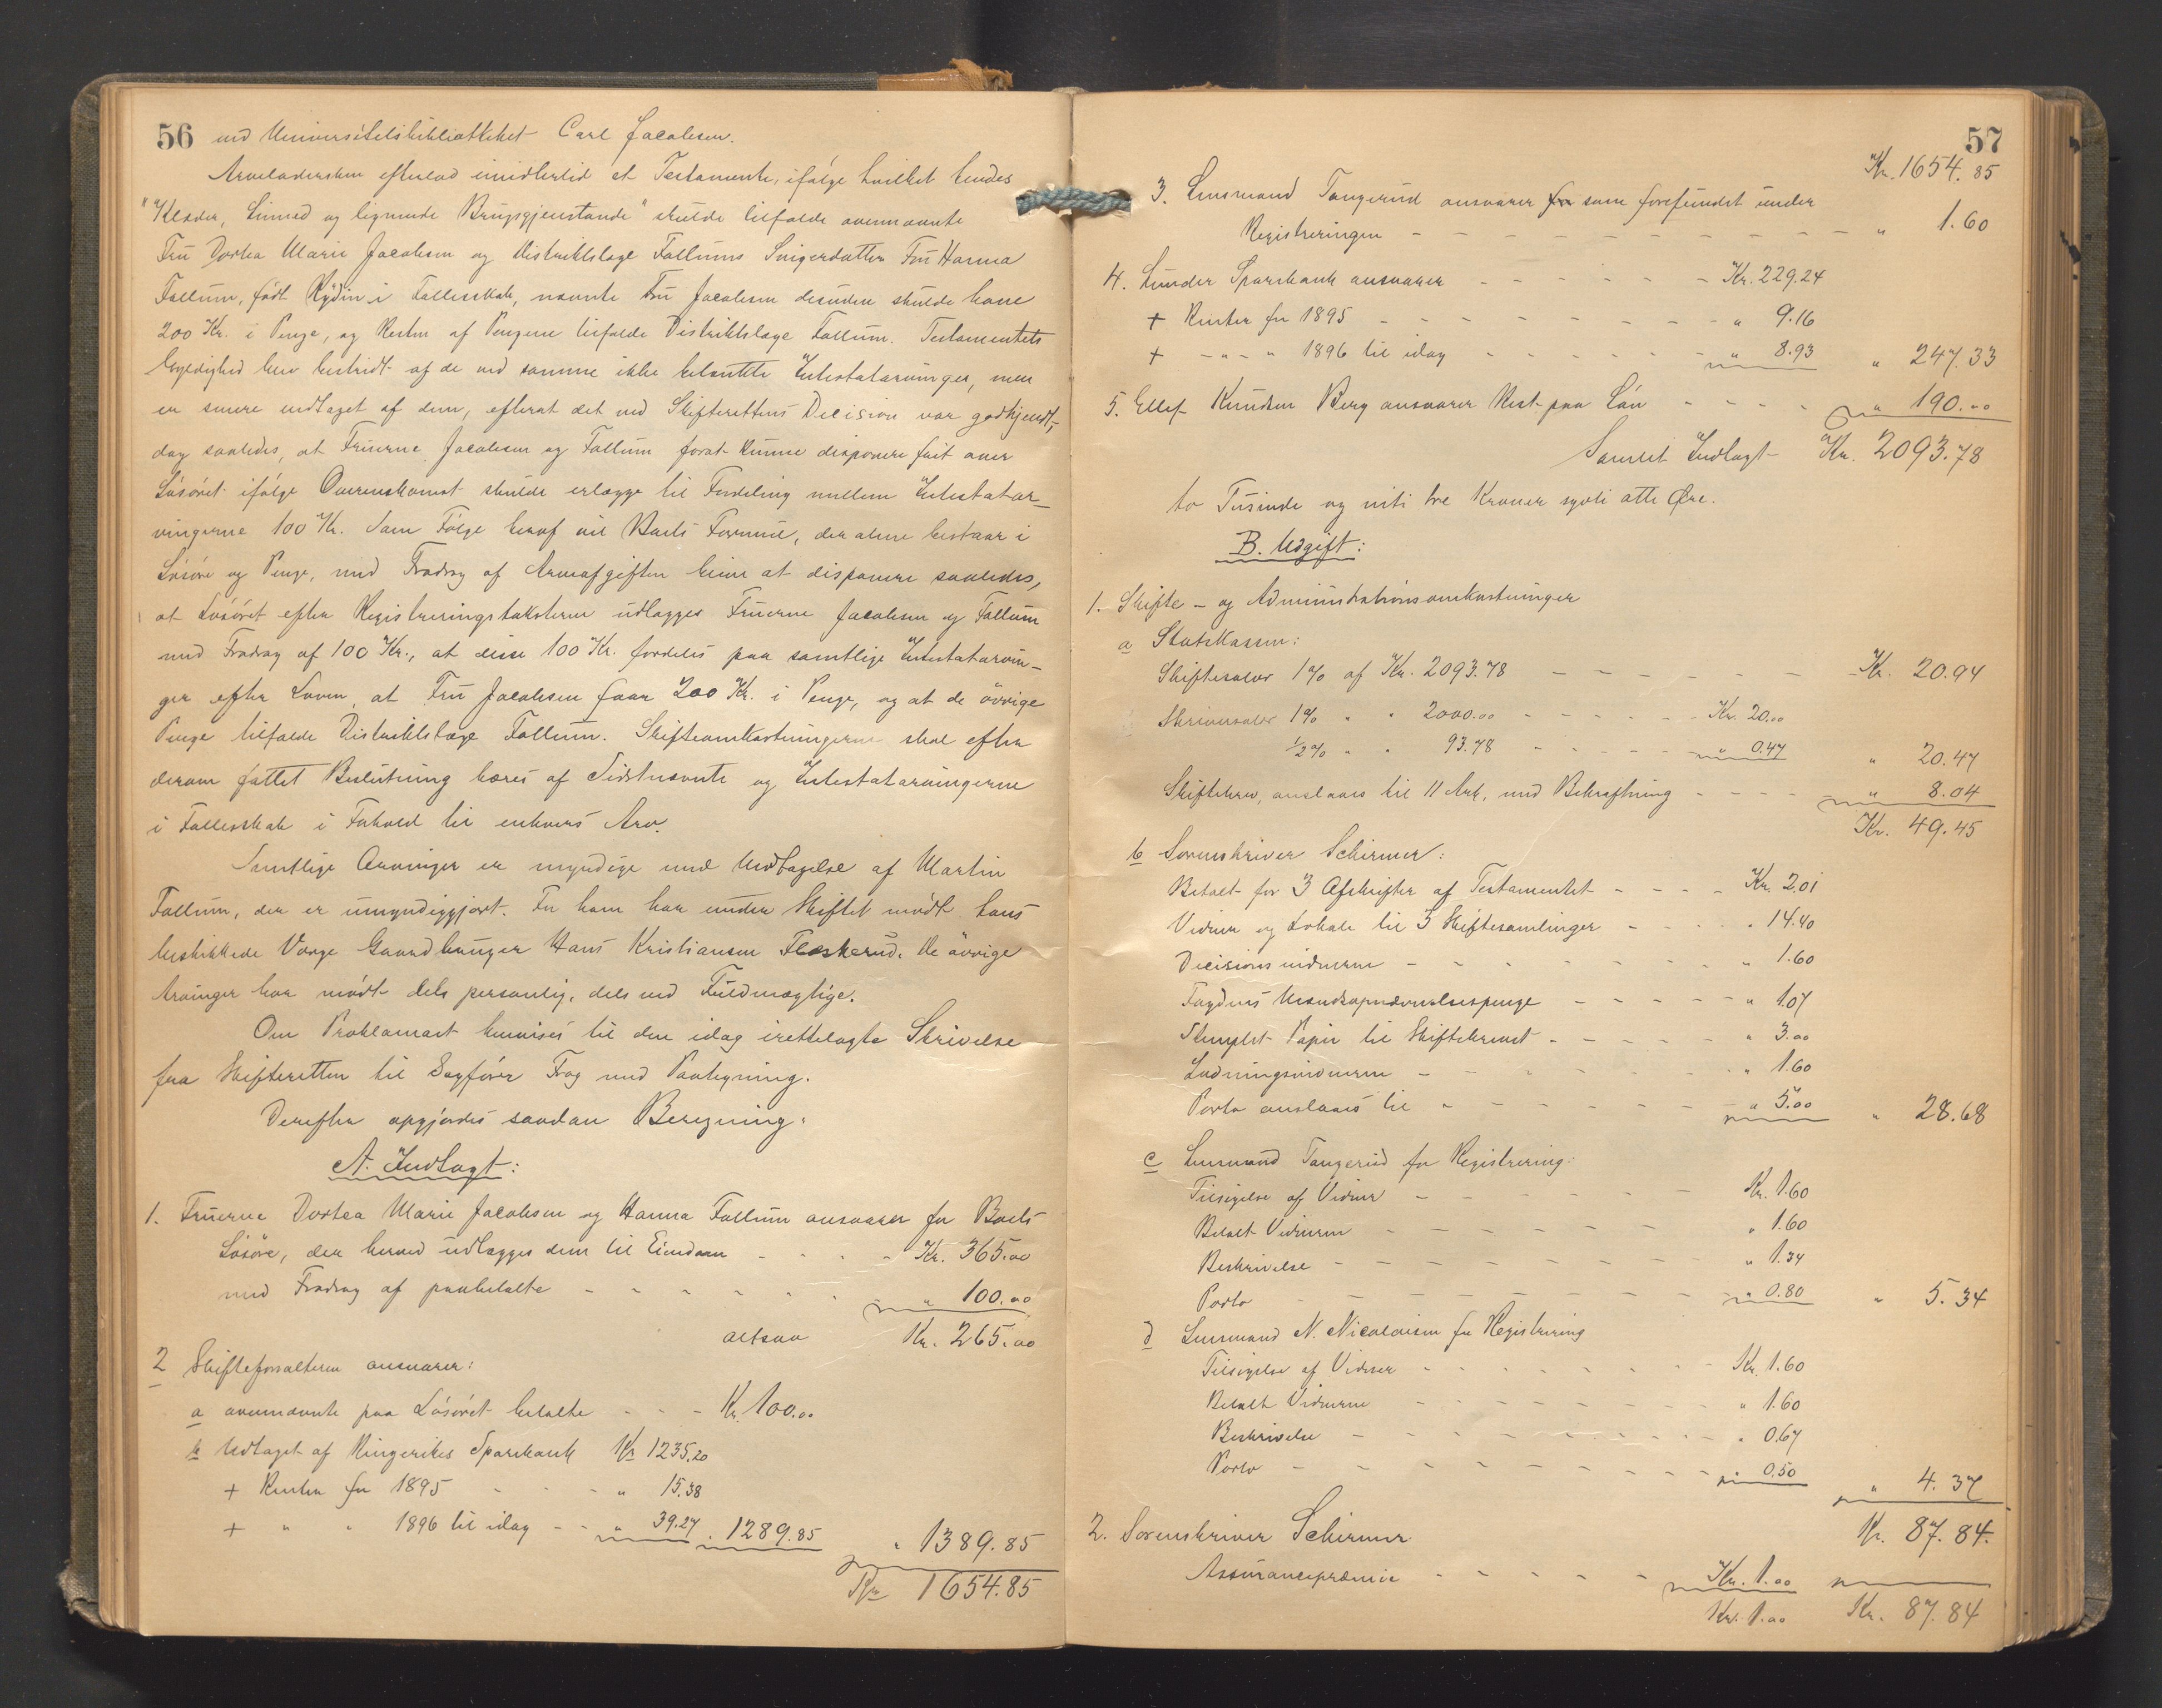 56 ved Universitetsbibliotheket Carl Jacobsen.
Arveladersken efterlod imidlertid et Testamente, ifølge hvilket hendes
"Klæder, Linned og lignende Brugsgjenstande" skulde tilfalde ovennævnte
Fru Dortea Marie Jacobsen og Distriktslæge Follums Svigerdatter Fru Hanna
Follum, født Rydin i Fællesskab, nævnte Fru Jacobsen desuden skulde have
200 Kr. i Penge, og Resten af Pengene tilfalde Distriktslæge Follum. Testamentets
Gyldighed blev bestridt af de ved samme ikke betænkte Intestatarvinger, men
er senere vedtaget af dem, efterat det ved Skifterettens Decision var godkjendt,
dog saaledes, at Fruerne Jacobsen og Follum forat kunne disponere frit over
Løsøret ifølge Overenskomst skulde erlægge til Fordeling mellem Intestatar-
vingerne 100 Kr. Som Følge heraf vil Boets Formue, der alene bestaar i
Løsøre og Penge, med Fradrag af Arveafgiften blive at disponere saaledes,
at Løsøret efter Registreringstaksterne udlægges Fruerne Jacobsen og Follum
med Fradrag af 100 Kr., at disse 100 Kr. fordeles paa samtlige Intestatarvin-
ger efter Loven, at Fru Jacobsen faar 200 Kr. i Penge, og at de øvrige
Penge tilfalde Distriktslæge Follum. Skifteomkostningerne skal efter
derom fattet Beslutning bæres af Sidstnævnte og Intestatarvingerne
i Fællesskab i Forhold til enhvers Arv.
Samtlige Arvinger er myndige med Undtagelse af Martin
Follum, der er umyndiggjort. For ham har under Skiftet mødt hans
beskikkede Værge Gaardbruger Hans Kristiansen Fleskerud. De øvrige
Arvinger har mødt dels personlig, dels ved Fuldmægtige.
Om Proklamaet henvises til den idag irettelagte Skrivelse
fra Skifteretten til Sagfører Frog med Paategning.
Derefter opgjordes saadan Beregning:
A. Indtægt:
1. Fruerne Dortea Marie Jacobsen og Hanna Follum ansvarer for Boets
Løsøre, der herved udlægges dem til Eiendom - - - - Kr. 365.00
med Fradrag af paabetalte - - - - - - " 100.00
altsaa Kr. 265.00
2 Skifteforvalteren ansvarer:
a ovennævnte paa Løsøret betalte - - - Kr. 100.00
b Udtaget af Ringerikes Sparebank Kr 1235.20
+ Renter for 1895 - - - " 15.38
+ " " 1896 til idag - - " 39.27 " 1289.85 " 1389.85
Kr 1654.85
57
Kr. 1654.85
3. Lensmand Tangerud ansvarer for som forefundet under
Registreringen - - - - - - - - - - " 1.60
4. Lunder Sparebank ansvarer - - - - - Kr. 229.24
+ Renter for 1895 - - - - - - - - " 9.16
+ - " - " 1896 til idag - - - - - - " 8.93 " 247.33
5. Ellef Knudsen Berg ansvarer Rest paa Lån - - - - " 190.00
Samlet Indtægt Kr. 2093.78
to Tusinde og nitti tre Kroner sytti otte Øre.
B. Udgift:
1. Skifte- og Administrationsomkostninger
a Statskassen:
Skiftesalær 1% af Kr. 2093.78 - - - - - - - Kr. 20.94
Skriversalær 1% " " 2000.00 - - - - - - Kr. 20.00
½% " " 93.78 - - - - - - " 0.47 " 20.47
Skiftebrev, anslaaes til 11 Ark, med Bekræftning - - - - " 8.04
Kr. 49.45
b Sorenskriver Schirmer:
Betalt for 3 Afskrifter af Testamentet - - - - Kr. 2.01
Vidner og Lokale til 3 Skiftesamlinger - - - - " 14.40
Decisionsvidnerne - - - - - - - " 1.60
Fogdens Mandsopnævnelsespenge - - - - - " 1.07
Stemplet Papir til Skiftebrevet - - - - - " 3.00
Lodningsvidnerne - - - - - - - " 1.60
Porto anslaaes til - - - - - - - " 5.00 " 28.68
c Lensmand Tangerud for Registrering:
Tilsigelse af Vidner - - - - - - Kr. 1.60
Betalt Vidnerne - - - - - - - " 1.60
Beskrivelse - - - - - - - - " 1.34
Porto - - - - - - - - " 0.80 " 5.34
d Lensmand N. Nicolaisen for Registrering
Tilsigelse af Vidner - - - - - - - Kr. 1.60
Betalt Vidnerne - - - - - - - " 1.60
Beskrivelse - - - - - - - - " 0.67
Porto - - - - - - - - - " 0.50 " 4.37
Kr. 87.84.
2. Sorenskriver Schirmer
Assurancepræmie - - - - - Kr. 1.00
Kr. 1.00 Kr. 87.84